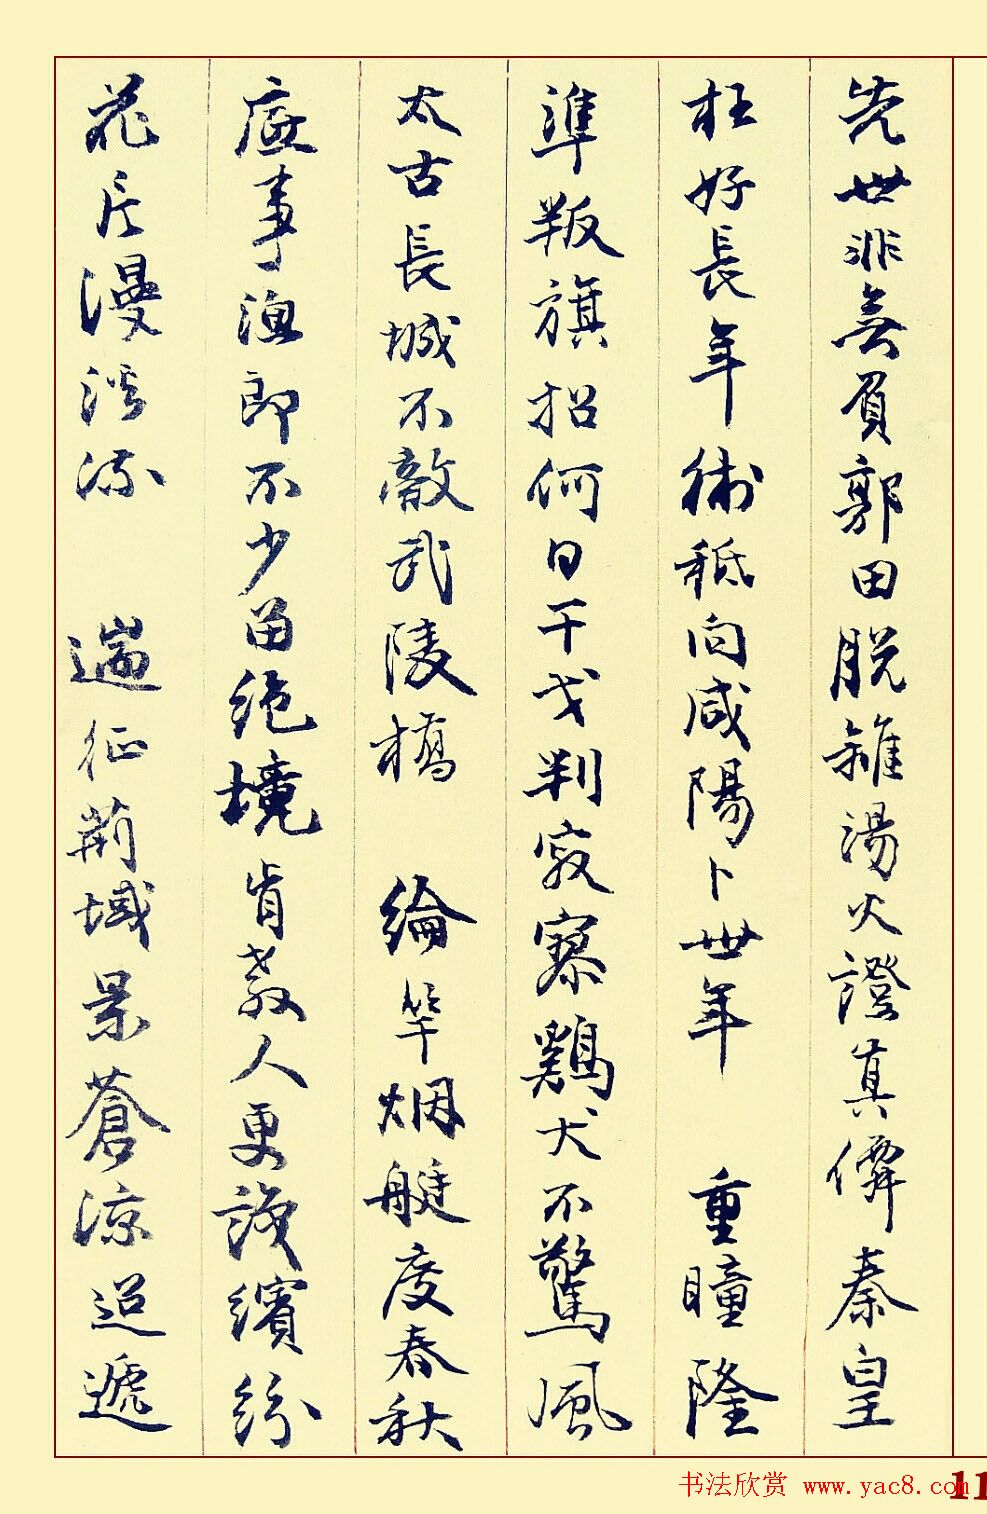 先世非無負郭田脱離湯火證真僊秦皇
枉好長年術秪向咸陽卜世年 重瞳隆
準叛旗招何日干戈判寂寥鷄犬不驚風
太古長城不敵武陵橋 綸竿烟艇度春秋
底事漁郎不少留絶境肯教人更識繽紛
花片漫隨流 遄征荊域景蒼涼迢遞
书法欣赏 www.yac8.com
11